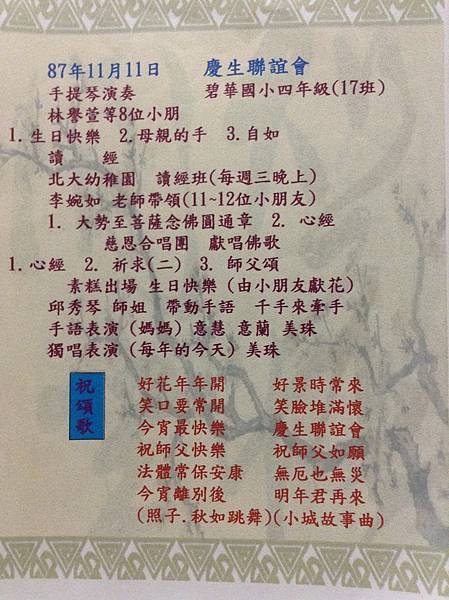 87年11月11日 慶生聯誼會
手提琴演奏 碧華國小四年級(17班)
林譽萱等8位小朋
1.生日快樂 2.母親的手 3.自如
讀 經
北大幼稚園 讀經班(每週三晚上)
李婉如 老師帶領(11~12位小朋友)
1. 大勢至菩薩念佛圓通章 2. 心經
慈恩合唱團 獻唱佛歌
1.心經 2. 祈求(二) 3. 師父頌
素糕出場 生日快樂 (由小朋友獻花)
邱秀琴 師姐 帶動手語 千手來牽手
手語表演 (媽媽) 意慧 意蘭 美珠
獨唱表演 (每年的今天) 美珠
祝頌歌
好花年年開 好景時常來
笑口要常開 笑臉堆滿懷
今宵最快樂 慶生聯誼會
祝師父快樂 祝師父如願
法體常保安康 無厄也無災
今宵離別後 明年君再來
(照子.秋如跳舞)(小城故事曲)